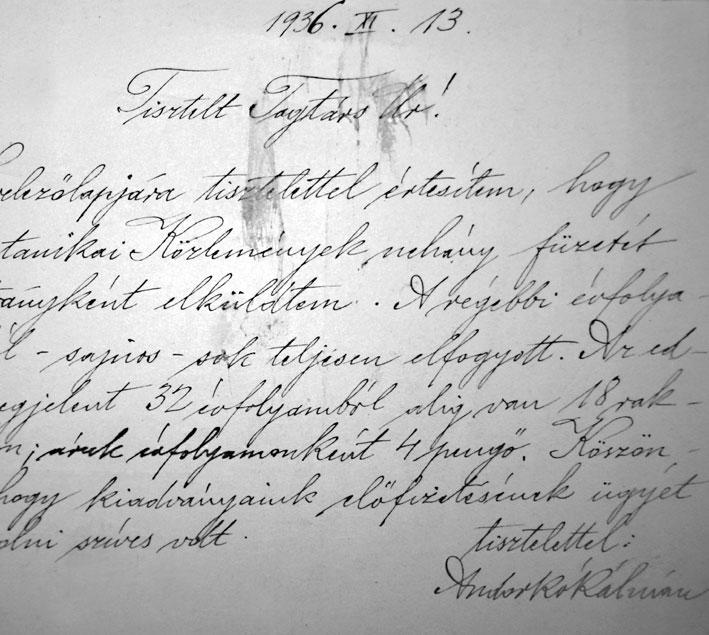 1936. XI. 13.
Tisztelt Tagtárs Úr!
velezőlapjára tisztelettel értesítem, hogy
tanikai Közlemények nehány füzetét
ványként elküldtem. A régebbi évfolya-
l - sajnos - sok teljesen elfogyott. Az ed-
egjelent 32 évfolyamból alig van 18 rak-
n; áruk évfolyamonként 4 pengő. Köszön-
hogy kiadványaink előfizetésének ügyét
olni szíves volt.
tisztelettel:
Andorkó Kálmán